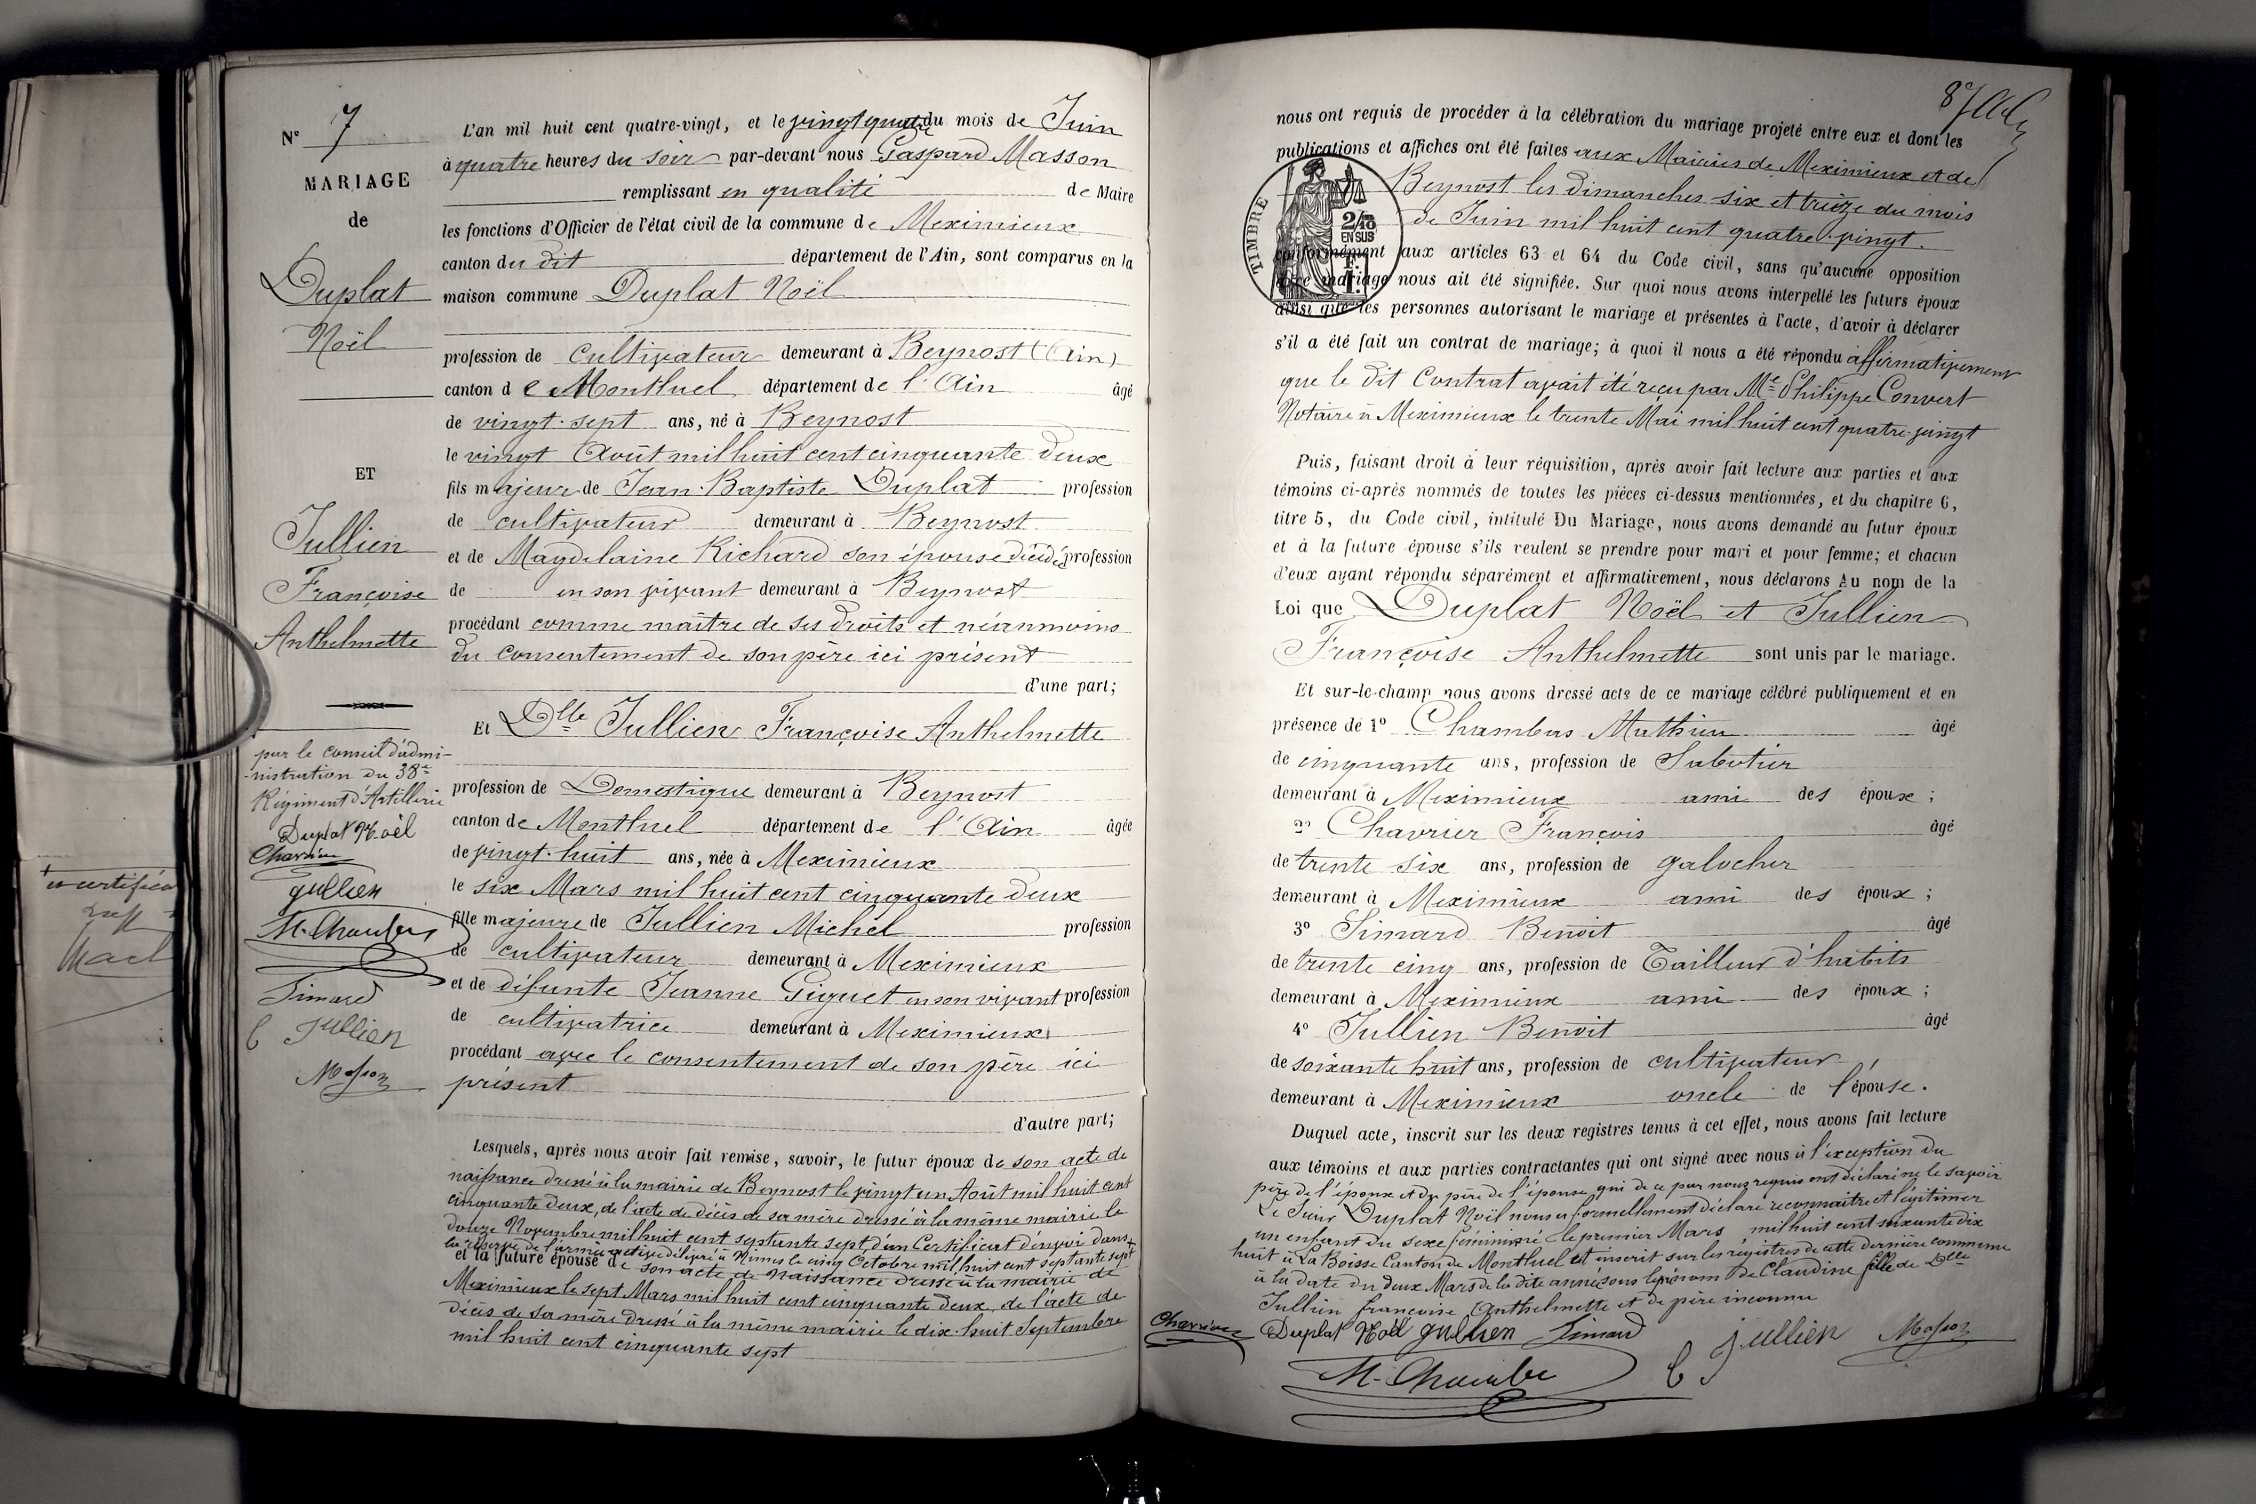 N° 7
MARIAGE
de
Duplat
Noël
ET
Jullien
Françoise
Anthelmette
par le conseil d'admi-
-nistration du 38e
Régiment d'Artillerie
Duplat Noël
Charrier
Jullien
M. Chambes
Simard
C Jullien
Masson
L'an mil huit cent quatre-vingt, et le vingt quatre du mois de Juin
à quatre heures du soir par-devant nous Gaspard Masson
remplissant en qualité de Maire
les fonctions d'Officier de l'état civil de la commune de Meximieux
canton du dit département de l'Ain, sont comparus en la
maison commune Duplat Noël
profession de Cultivateur demeurant à Beynost (Ain)
canton de Montluel département de l'Ain âgé
de vingt-sept ans, né à Beynost
le vingt Août mil huit cent cinquante deux
fils majeur de Jean-Baptiste Duplat profession
de cultivateur demeurant à Beynost
et de Magdelaine Richard son épouse décédée profession
de en son vivant demeurant à Beynost
procédant comme maître de ses droits et néanmoins
du consentement de son père ici présent
d'une part;
Et Dlle Jullien Françoise Anthelmette
profession de Domestique demeurant à Beynost
canton de Montluel département de l'Ain âgée
de vingt-huit ans, née à Meximieux
le six Mars mil huit cent cinquante deux
fille majeure de Jullien Michel profession
de cultivateur demeurant à Meximieux
et de défunte Jeanne Giguet en son vivant profession
de cultivatrice demeurant à Meximieux
procédant avec le consentement de son père ici
présent
d'autre part;
Lesquels, après nous avoir fait remise, savoir, le futur époux de son acte de
naissance dressé à la mairie de Beynost le vingt un Août mil huit cent
cinquante deux, de l'acte de décès de sa mère dressé à la même mairie le
douze Novembre mil huit cent septante sept, d'un Certificat d'envoi dans
la réserve de l'armée active délivré à Nimes le cinq Octobre mil huit cent septante sept
et la future épouse de son acte de naissance dressé à la mairie de
Meximieux le sept Mars mil huit cent cinquante deux, de l'acte de
décès de sa mère dressé à la même mairie le dix-huit Septembre
mil huit cent cinquante sept
8e
nous ont requis de procéder à la célébration du mariage projeté entre eux et dont les
publications et affiches ont été faites aux Mairies de Meximieux et de
Beynost les dimanches six et treize du mois
de Juin mil huit cent quatre-vingt.
conformément aux articles 63 et 64 du Code civil, sans qu'aucune opposition
audit mariage nous ait été signifiée. Sur quoi nous avons interpellé les futurs époux
ainsi que les personnes autorisant le mariage et présentes à l'acte, d'avoir à déclarer
s'il a été fait un contrat de mariage; à quoi il nous a été répondu affirmativement
que le dit Contrat avait été reçu par Me Philippe Convert
Notaire à Meximieux le trente Mai mil huit cent quatre-vingt
TIMBRE
2/10
EN SUS
F.
1.
Puis, faisant droit à leur réquisition, après avoir fait lecture aux parties et aux
témoins ci-après nommés de toutes les pièces ci-dessus mentionnées, et du chapitre 6,
titre 5, du Code civil, intitulé Du Mariage, nous avons demandé au futur époux
et à la future épouse s'ils veulent se prendre pour mari et pour femme; et chacun
d'eux ayant répondu séparément et affirmativement, nous déclarons Au nom de la
Loi que Duplat Noël et Jullien
Françoise Anthelmette sont unis par le mariage.
Et sur-le-champ nous avons dressé acte de ce mariage célébré publiquement et en
présence de 1° Chambes Mathieu âgé
de cinquante ans, profession de Sabotier
demeurant à Meximieux ami des époux;
2° Charrier François âgé
de trente six ans, profession de galocher
demeurant à Meximieux ami des époux;
3° Simard Benoit âgé
de trente cinq ans, profession de Tailleur d'habits
demeurant à Meximieux ami des époux;
4° Jullien Benoit âgé
de soixante huit ans, profession de cultivateur
demeurant à Meximieux oncle de l'épouse.
Duquel acte, inscrit sur les deux registres tenus à cet effet, nous avons fait lecture
aux témoins et aux parties contractantes qui ont signé avec nous à l'exception du
père de l'époux et du père de l'épouse qui de ce par nous requis ont déclaré ne le savoir
Le Sieur Duplat Noël nous a formellement déclaré reconnaître et légitimer
un enfant du sexe féminin né le premier Mars mil huit cent soixante dix
huit à La Boisse Canton de Montluel et inscrit sur les registres de cette dernière commune
à la date du deux Mars de la dite année sous le prénom de Claudine fille de Dlle
Jullien françoise Anthelmette et de père inconnu
Charrier Duplat Noël Jullien Simard C Jullien Masson
M. Chambe